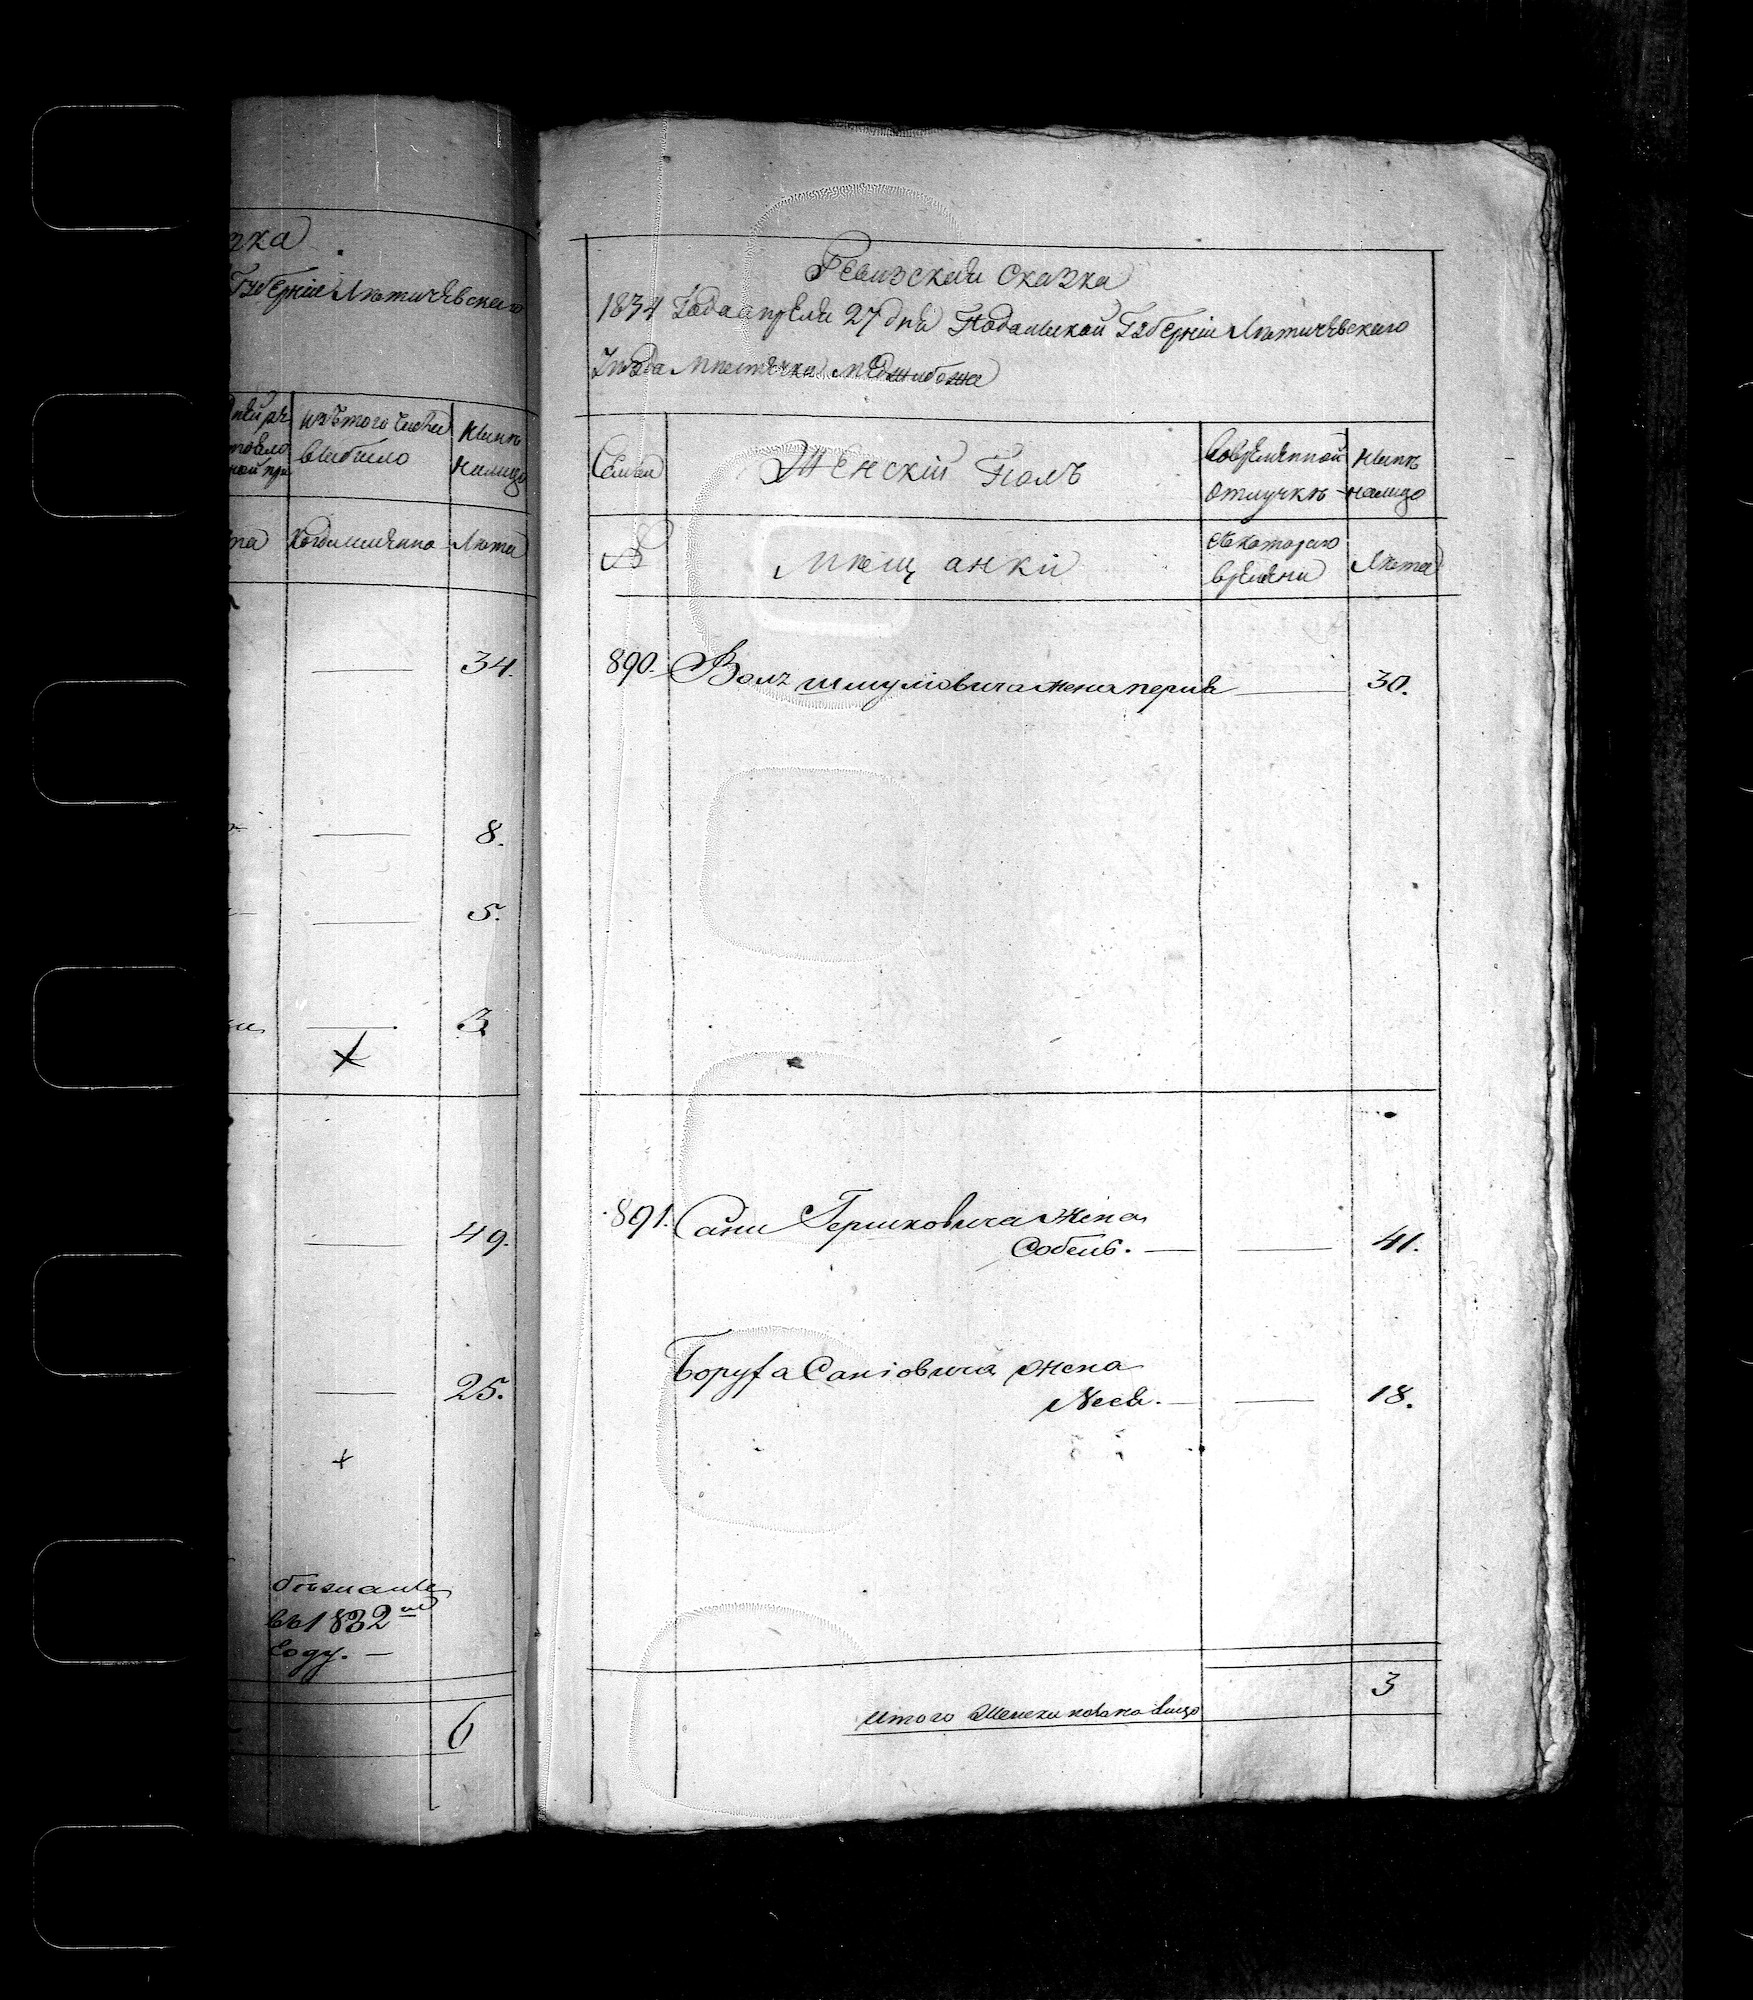 зка
Губерніи Лѣтичевскаго
изъ того числа
выбыло
Нынѣ
налицо
Когда именно
Лѣта
34.
8.
5.
3
49.
25.
въ 1832мъ
году. —
6
Ревизская сказка
1834 Года апреля 27 дня Подольской Губерніи Лѣтичевскаго
Уѣзда Мѣстечка Меджибожа
Семьи
Женскій Полъ
Во временной
отлучкѣ
Нынѣ
налицо
№
Мѣщанки
Съ котораго
времени
Лѣта
890. Волъ Шмулювича жена перля — 30.
891. Сани Гершковича жена
Собель. — — 41.
Боруха Саніовича жена
Неся. — — 18.
3
Итого женска пола на лицо